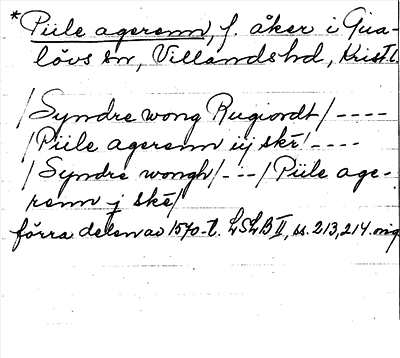 *Piile agerenn, f. åker i Gua-
lövs sn, Villands hd, Krist l.
/Syndre wong Rugiordt/ ----
/Piile agerenn iij ske/ ----
/Syndre wongh/ --- /Piile age-
renn j ske/
förra delen av 1570-t. LSLB II, ss. 213, 214. orig